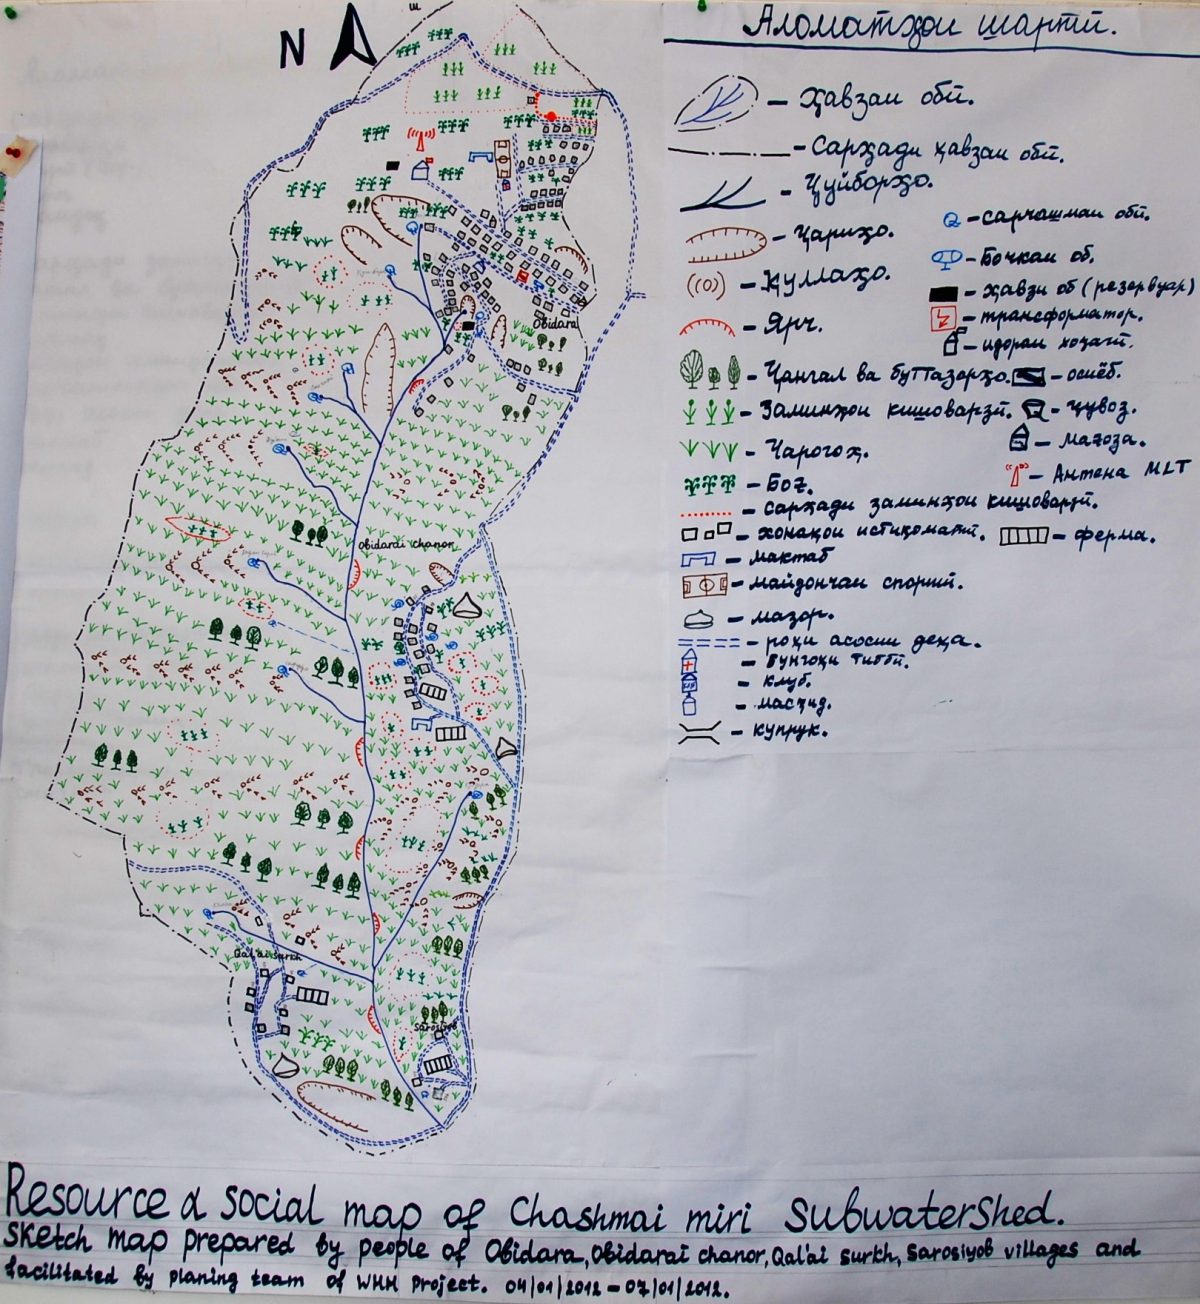 N
Аломатҳои шартӣ.
– Ҳавзаи обӣ.
– Сарҳади ҳавзаи обӣ.
– Ҷуйборҳо.
– Ҷариҳо.
– Қуллаҳо.
– Ярч.
– Ҷангал ва буттазорҳо.
– Заминҳои кишоварзӣ.
– Чарогоҳ.
– Боғ.
– сарҳади заминҳои кишоварзӣ.
– хонаҳои истиқоматӣ.
– мактаб
– майдончаи спортӣ.
– мазор.
– роҳи асосии деҳа.
– бунгоҳи тиббӣ.
– клуб.
– масҷид.
– купрук.
– сарчашмаи обӣ.
– Бочкаи об.
– ҳавзи об (резервуар)
– трансформатор.
– идораи хоҷагӣ.
– осиёб.
– ҷувоз.
– мағоза.
– Антена MLT
– ферма.
Obidara
Obidarai chanor
Qal'ai surkh
Sarosiyob
Resource & social map of Chashmai miri Subwatershed.
Sketch map prepared by people of Obidara, Obidarai chanor, Qal'ai surkh, Sarosiyob villages and
facilitated by planing team of WHH project. 04/01/2012 – 07/01/2012.